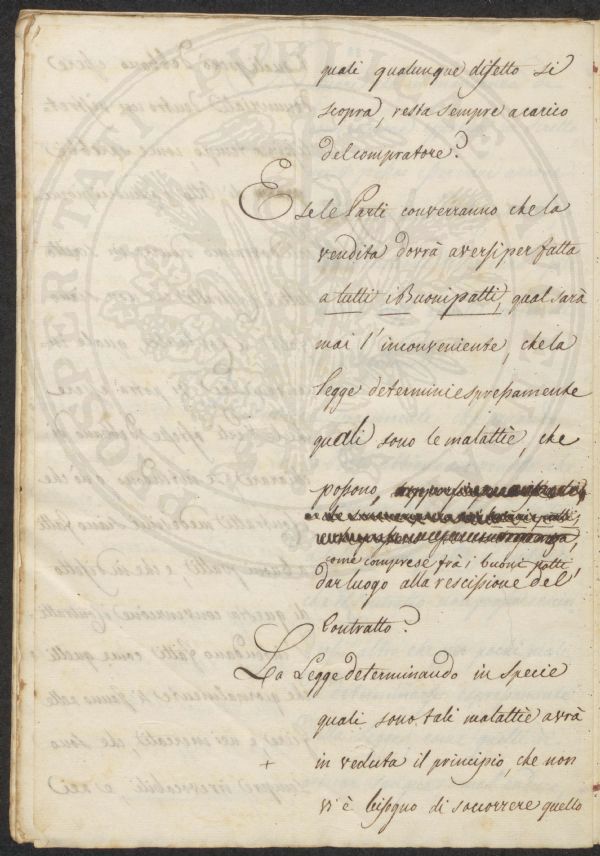 quali qualunque difetto si
scopra, resta sempre a carico
del compratore?
E se le Parti converranno che la
vendita dovrà aversi per fatta
a tutti i Buoni patti, qual sarà
mai l'inconveniente, che la
Legge determini espressamente
quali sono le malattie, che
possono,
come comprese frà i buoni patti,
dar luogo alla rescissione del
Contratto?
La Legge determinando in specie
quali sono tali malattie avrà
+ in veduta il principio, che non
vi è bisogno di soccorrere quello